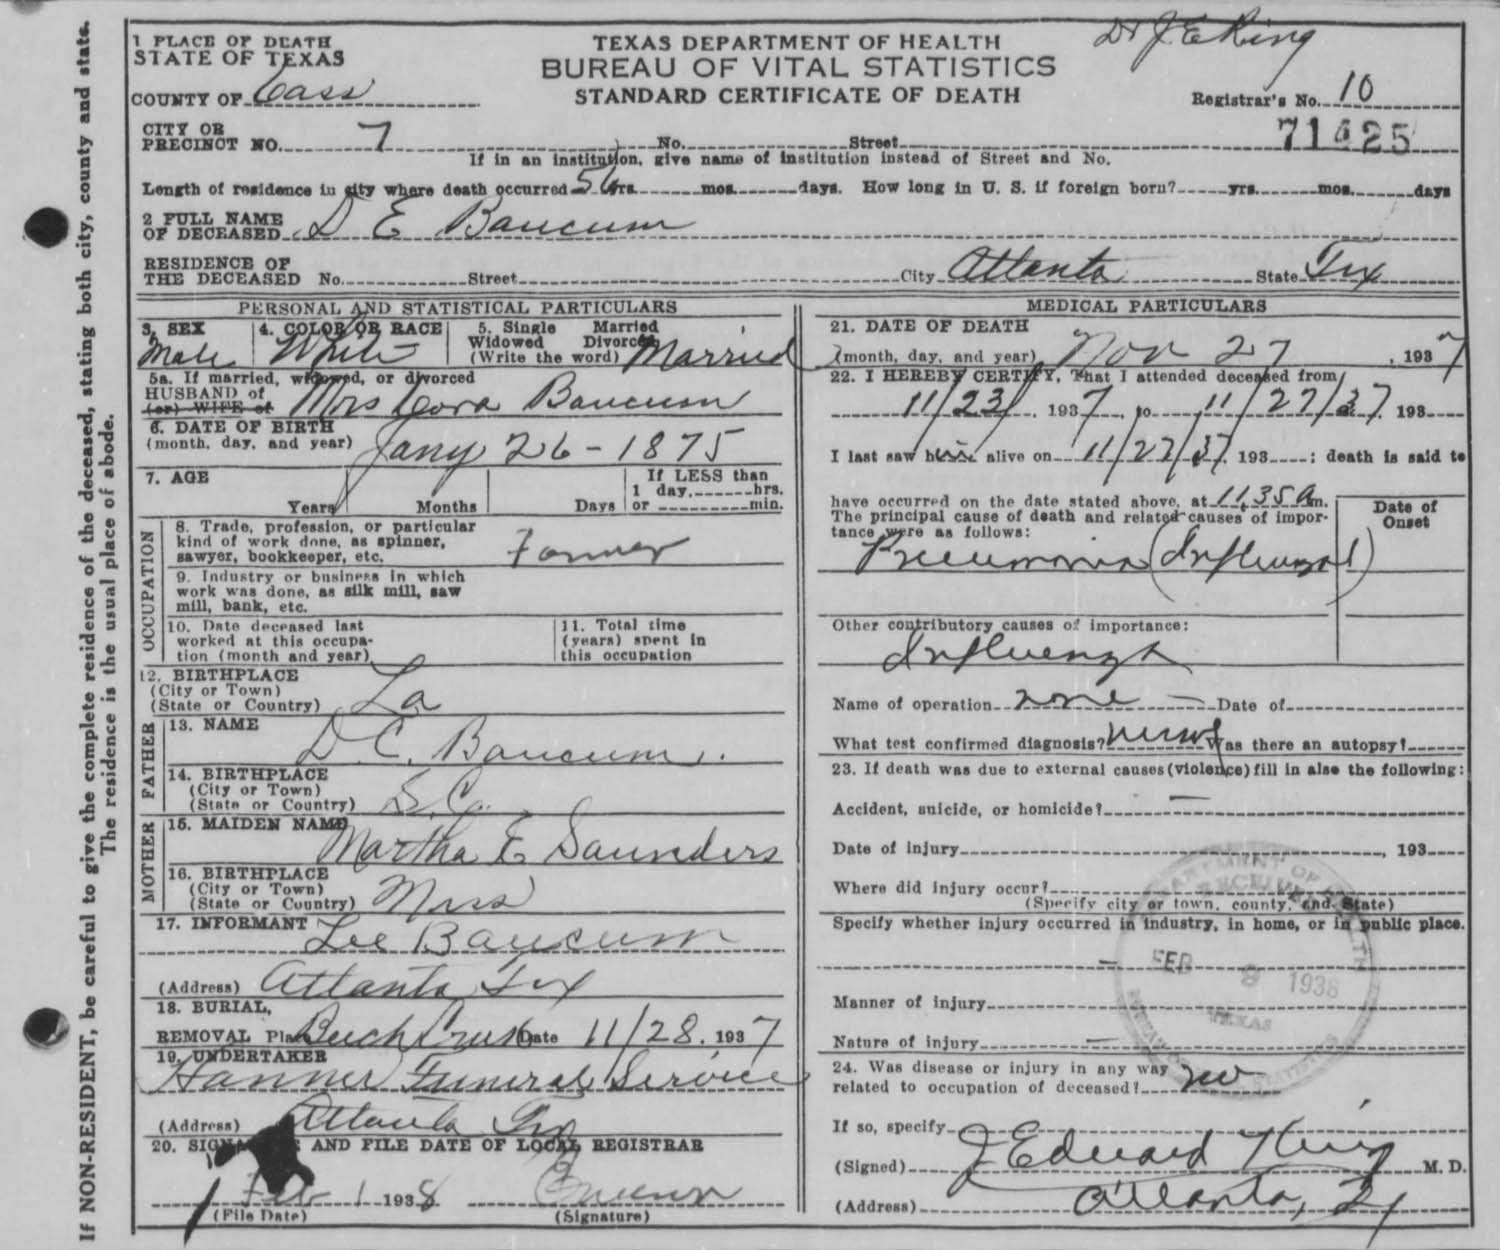 Dr J. E King
1 PLACE OF DEATH
STATE OF TEXAS
COUNTY OF Cass
TEXAS DEPARTMENT OF HEALTH
BUREAU OF VITAL STATISTICS
STANDARD CERTIFICATE OF DEATH
Registrar's No. 10
71425
CITY OR
PRECINCT NO. 7 No. Street
If in an institution, give name of institution instead of Street and No.
Length of residence in city where death occurred 56 yrs. mos. days. How long in U. S. if foreign born? yrs. mos. days
2 FULL NAME
OF DECEASED D E Baucum
RESIDENCE OF
THE DECEASED No. Street City Atlanta State Tex
PERSONAL AND STATISTICAL PARTICULARS
3. SEX 4. COLOR OR RACE 5. Single Married
Widowed Divorced
Male White (Write the word) Married
5a. If married, widowed, or divorced
HUSBAND of
(or) WIFE of Mrs Cora Baucum
6. DATE OF BIRTH
(month, day, and year) Jany 26 - 1875
7. AGE If LESS than
1 day, hrs.
Years Months Days or min.
OCCUPATION
8. Trade, profession, or particular
kind of work done, as spinner,
sawyer, bookkeeper, etc. Farmer
9. Industry or business in which
work was done, as silk mill, saw
mill, bank, etc.
10. Date deceased last
worked at this occupa-
tion (month and year)
11. Total time
(years) spent in
this occupation
12. BIRTHPLACE
(City or Town)
(State or Country) La
FATHER
13. NAME
D. C. Baucum.
14. BIRTHPLACE
(City or Town)
(State or Country) S. Ca.
MOTHER
15. MAIDEN NAME
Martha E Saunders
16. BIRTHPLACE
(City or Town)
(State or Country) Miss
17. INFORMANT Lee Baucum
(Address) Atlanta Tex
18. BURIAL,
REMOVAL Place Beech Date 11/28. 1937
19. UNDERTAKER
Hanner Funeral Service
(Address) Atlanta Tex
20. SIGNATURE AND FILE DATE OF LOCAL REGISTRAR
Feb 1 1938
(File Date) (Signature)
MEDICAL PARTICULARS
21. DATE OF DEATH
(month, day, and year) Nov 27, 1937
22. I HEREBY CERTIFY, That I attended deceased from
11/23/, 1937, to 11/27/37, 193
I last saw him alive on 11/27/37, 193; death is said to
have occurred on the date stated above, at 11,35 a m.
The principal cause of death and related causes of impor-
tance were as follows:
Date of
Onset
Pneumonia (Influenzal)
Other contributory causes of importance:
Influenza
Name of operation none Date of
What test confirmed diagnosis? Was there an autopsy?
23. If death was due to external causes (violence) fill in alse the following:
Accident, suicide, or homicide? —
Date of injury, 193
Where did injury occur?
(Specify city or town, county, and State)
Specify whether injury occurred in industry, in home, or in public place.
—
Manner of injury
Nature of injury —
24. Was disease or injury in any way
related to occupation of deceased? no
If so, specify
(Signed) J Edward King M. D.
(Address) Atlanta, Tx
DEPARTMENT OF HEALTH
RECEIVED
FEB 8 1938
TEXAS
BUREAU OF VITAL STATISTICS
If NON-RESIDENT, be careful to give the complete residence of the deceased, stating both city, county and state.
The residence is the usual place of abode.